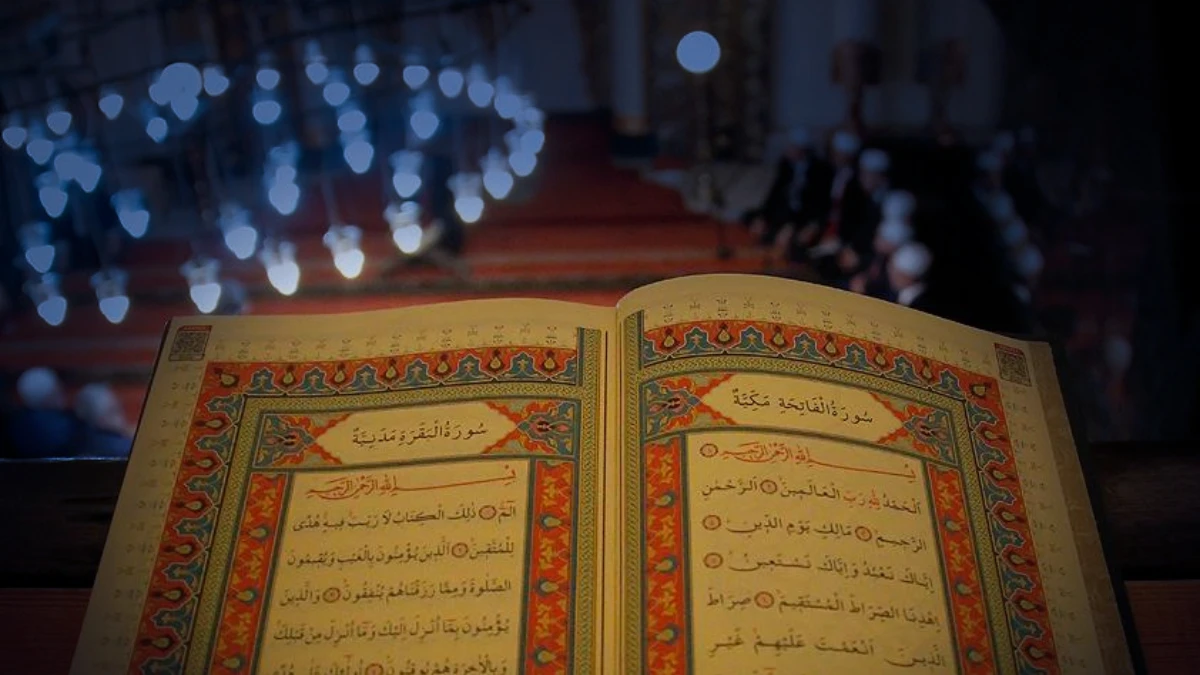 سُورَةُ الْفَاتِحَةِ مَكِّيَّةٌ
بِسْــــــمِ اللهِ الرَّحْمٰنِ الرَّحِيمِ ۝
اَلْحَمْدُ لِلّٰهِ رَبِّ الْعَالَمِينَ ۝ اَلرَّحْمٰنِ
الرَّحِيمِ ۝ مَالِكِ يَوْمِ الدِّينِ ۝
اِيَّاكَ نَعْبُدُ وَاِيَّاكَ نَسْتَعِينُ ۝
اِهْدِنَا الصِّرَاطَ الْمُسْتَقِيمَ ۝ صِرَاطَ
الَّذِينَ اَنْعَمْتَ عَلَيْهِمْ غَيْرِ
سُورَةُ الْبَقَرَةِ مَدَنِيَّةٌ
بِسْــــــمِ اللهِ الرَّحْمٰنِ الرَّحِيمِ
الٓمٓ ۝ ذٰلِكَ الْكِتَابُ لَا رَيْبَ فِيهِ هُدًى
لِلْمُتَّقِينَ ۝ اَلَّذِينَ يُؤْمِنُونَ بِالْغَيْبِ وَيُقِيمُونَ
الصَّلٰوةَ وَمِمَّا رَزَقْنَاهُمْ يُنْفِقُونَ ۝ وَالَّذِينَ
يُؤْمِنُونَ بِمَٓا اُنْزِلَ اِلَيْكَ وَمَٓا اُنْزِلَ مِنْ قَبْلِكَ
وَبِالْاٰخِرَةِ هُمْ يُوقِنُونَ ۝ اُولٰٓئِكَ عَلٰى هُدًى